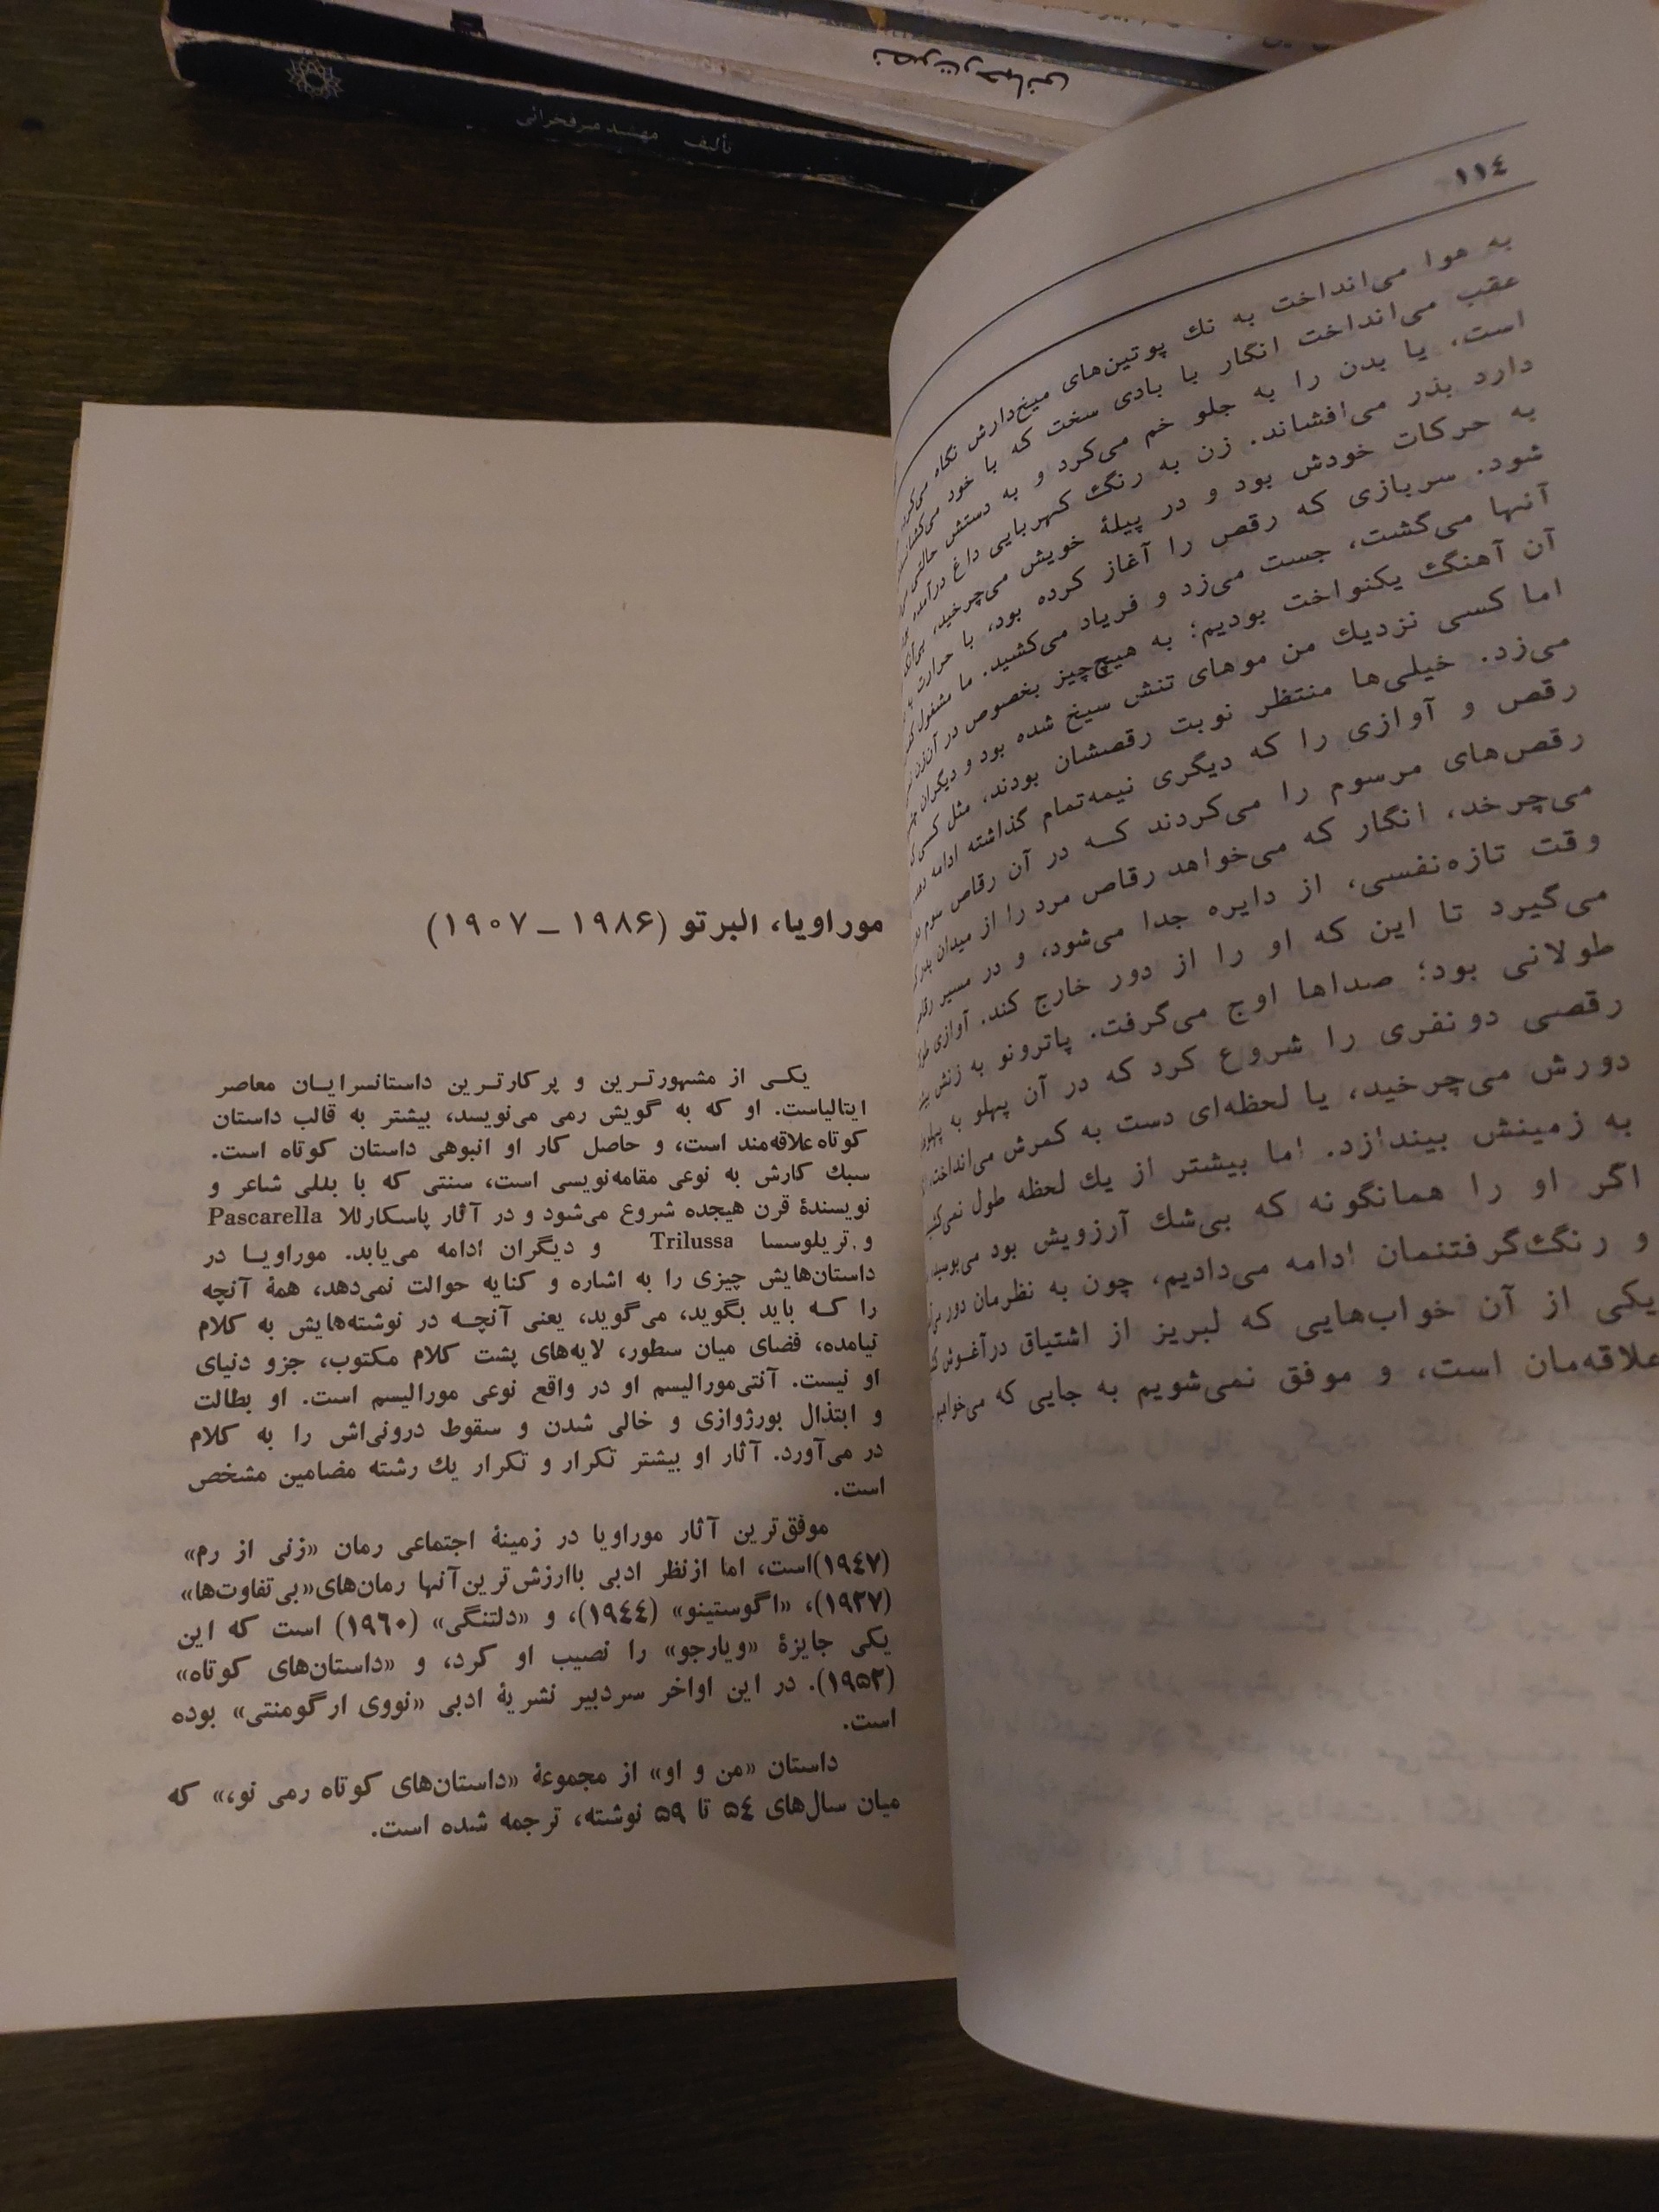 نصرت رحمانی
تألیف مهندس میرفخرائی
۱۱٤
به هوا می‌انداخت به نك پوتین‌های میخ‌دارش نگاه می‌کرد
عقب می‌انداخت انگار با بادی سخت که با خود می‌کشاند
است، یا بدن را به جلو خم می‌کرد و به دستش حالتی
دارد بذر می‌افشاند. زن به رنگ کهربایی داغ درآمده
به حرکات خودش بود و در پیلهٔ خویش می‌چرخید،
شود. سربازی که رقص را آغاز کرده بود، با حرارت
آنها می‌گشت، جست می‌زد و فریاد می‌کشید. ما مشغول
آن آهنگ یکنواخت بودیم؛ به هیچ‌چیز بخصوص در آن
اما کسی نزدیك من موهای تنش سیخ شده بود و دیگران
می‌زد. خیلی‌ها منتظر نوبت رقصشان بودند، مثل کسی
رقص و آوازی را که دیگری نیمه‌تمام گذاشته ادامه
رقص‌های مرسوم را می‌کردند که در آن رقاص سوم
می‌چرخد، انگار که می‌خواهد رقاص مرد را از میدان
وقت تازه‌نفسی، از دایره جدا می‌شود، و در مسیر
می‌گیرد تا این که او را از دور خارج کند. آوازی
طولانی بود؛ صداها اوج می‌گرفت. پاترونو به زنش
رقصی دونفری را شروع کرد که در آن پهلو به
دورش می‌چرخید، یا لحظه‌ای دست به کمرش می‌انداخت
به زمینش بیندازد. اما بیشتر از یك لحظه طول
اگر او را همانگونه که بی‌شك آرزویش بود می‌بوسید
و رنگ‌گرفتنمان ادامه می‌دادیم، چون به نظرمان دور
یکی از آن خواب‌هایی که لبریز از اشتیاق درآغوش
علاقه‌مان است، و موفق نمی‌شویم به جایی که
موراویا، البرتو (۱۹۸۶ – ۱۹۰۷)
یکی از مشهورترین و پرکارترین داستانسرایان معاصر
ایتالیاست. او که به گویش رمی می‌نویسد، بیشتر به قالب داستان
کوتاه علاقه‌مند است، و حاصل کار او انبوهی داستان کوتاه است.
سبك کارش به نوعی مقامه‌نویسی است، سنتی که با بللی شاعر و
نویسندهٔ قرن هیجده شروع می‌شود و در آثار پاسکارللا Pascarella
و تریلوسسا Trilussa و دیگران ادامه می‌یابد. موراویا در
داستان‌هایش چیزی را به اشاره و کنایه حوالت نمی‌دهد، همهٔ آنچه
را که باید بگوید، می‌گوید، یعنی آنچه در نوشته‌هایش به کلام
نیامده، فضای میان سطور، لایه‌های پشت کلام مکتوب، جزو دنیای
او نیست. آنتی‌مورالیسم او در واقع نوعی مورالیسم است. او بطالت
و ابتذال بورژوازی و خالی شدن و سقوط درونی‌اش را به کلام
در می‌آورد. آثار او بیشتر تکرار و تکرار یك رشته مضامین مشخص
است.
موفق‌ترین آثار موراویا در زمینهٔ اجتماعی رمان «زنی از رم»
(۱۹٤۷)است، اما ازنظر ادبی باارزش‌ترین‌آنها رمان‌های«بی‌تفاوت‌ها»
(۱۹۲۷)، «اگوستینو» (۱۹٤٤)، و «دلتنگی» (۱۹٦۰) است که این
یکی جایزهٔ «ویارجو» را نصیب او کرد، و «داستان‌های کوتاه»
(۱۹۵۲). در این اواخر سردبیر نشریهٔ ادبی «نووی ارگومنتی» بوده
است.
داستان «من و او» از مجموعهٔ «داستان‌های کوتاه رمی نو،» که
میان سال‌های ۵٤ تا ۵۹ نوشته، ترجمه شده است.